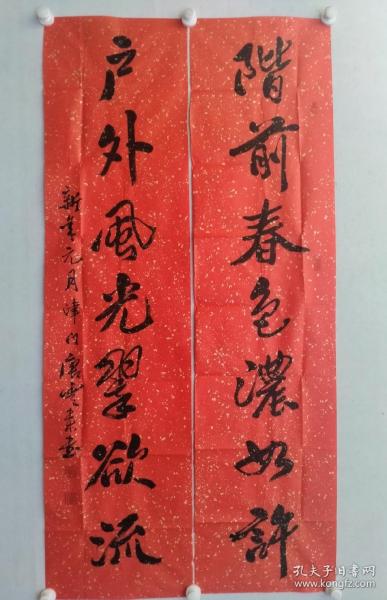 階前春色濃如許
户外風光翠欲流
新春元月津门唐雲来书
孔夫子旧书网
www.kongfz.com